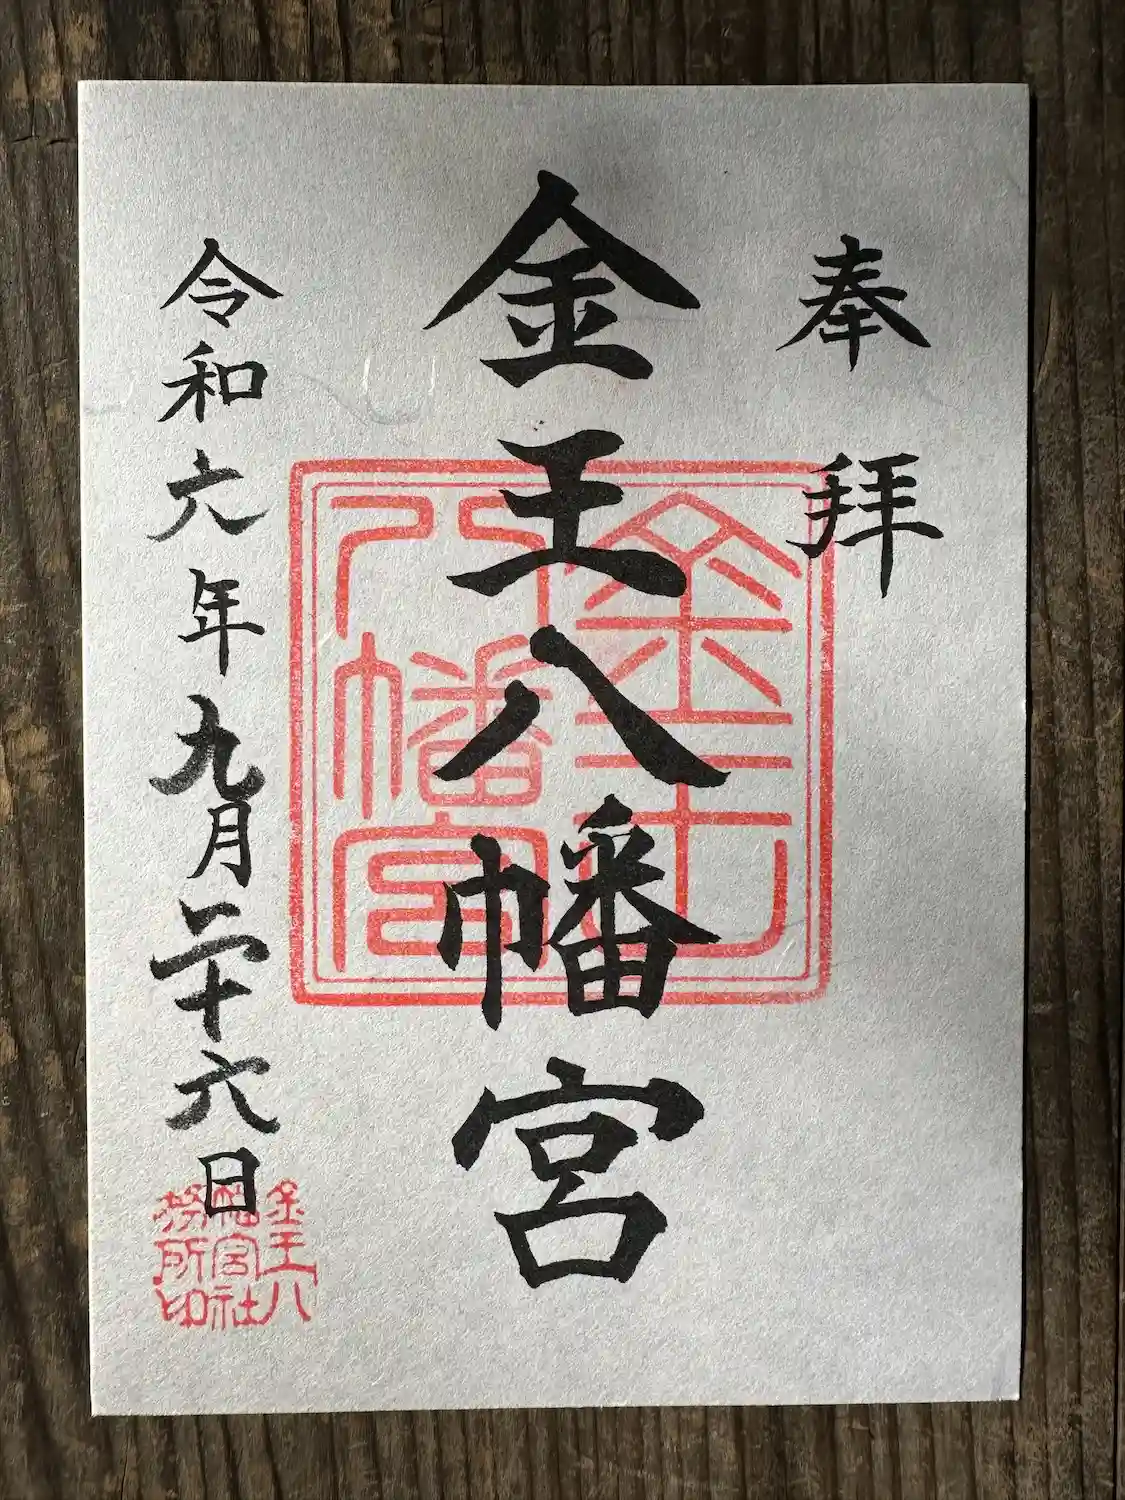 奉拝
金王八幡宮
金王八幡宮
令和六年九月二十六日
金王八幡宮社務所印